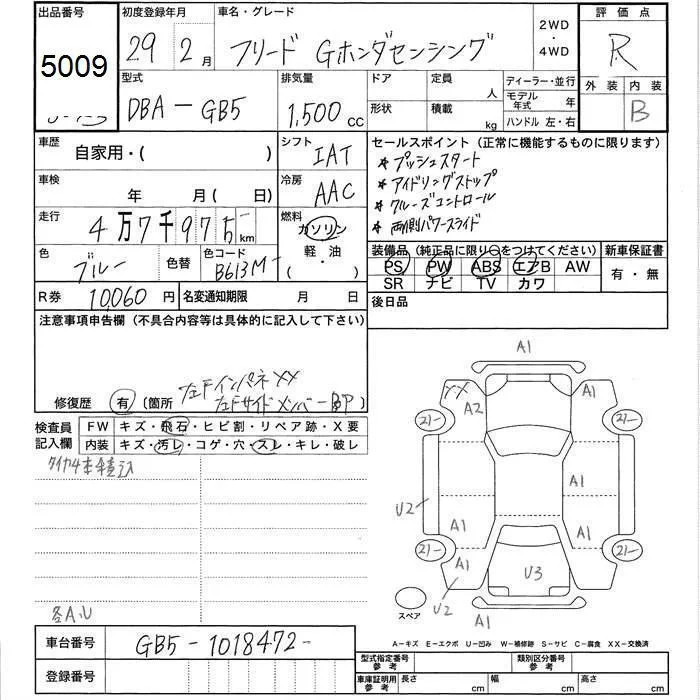 出品番号 初度登録年月 車名・グレード 2WD・4WD 評価点
5009 29 2月 フリード Gホンダセンシング R
型式 排気量 ドア 定員 人 ディーラー・並行 外装 内装
DBA-GB5 1,500cc 形状 積載 kg モデル年式 年 ハンドル 左・右 B
車歴 自家用・( ) シフト IAT セールスポイント (正常に機能するものに限ります)
★プッシュスタート
車検 年 月( 日) 冷房 AAC ★アイドリングストップ
★クルーズコントロール
走行 4万7千975km 燃料 ガソリン 軽・油 ( ) ★両側パワースライド
色 ブルー 色替 色コード B613M- 装備品 (純正品に限り○をつけてください) 新車保証書
PS PW ABS エアB AW 有・無
SR ナビ TV カワ
R券 10,060円 名変通知期限 月 日 後日品
注意事項申告欄 (不具合内容等は具体的に記入して下さい)
修復歴 有 (箇所 左FインパネXX
左Fサイドメンバー BP)
検査員記入欄 FW キズ・飛石・ヒビ割・リペア跡・X要
内装 キズ・汚レ・コゲ・穴・スレ・キレ・破レ
タイヤ4本
各A.U
A1
XX A2 A1
21- 21-
U2 A1 A1 A1
21- 21-
A1 U3 A1
U2 A1
スペア
A-キズ E-エクボ U-凹み W-補修跡 S-サビ C-腐食 XX-交換済
車台番号 GB5-1018472-
登録番号
型式指定番号参考 類別区分番号参考
車庫証明用参考 長さ cm 幅 cm 高さ cm